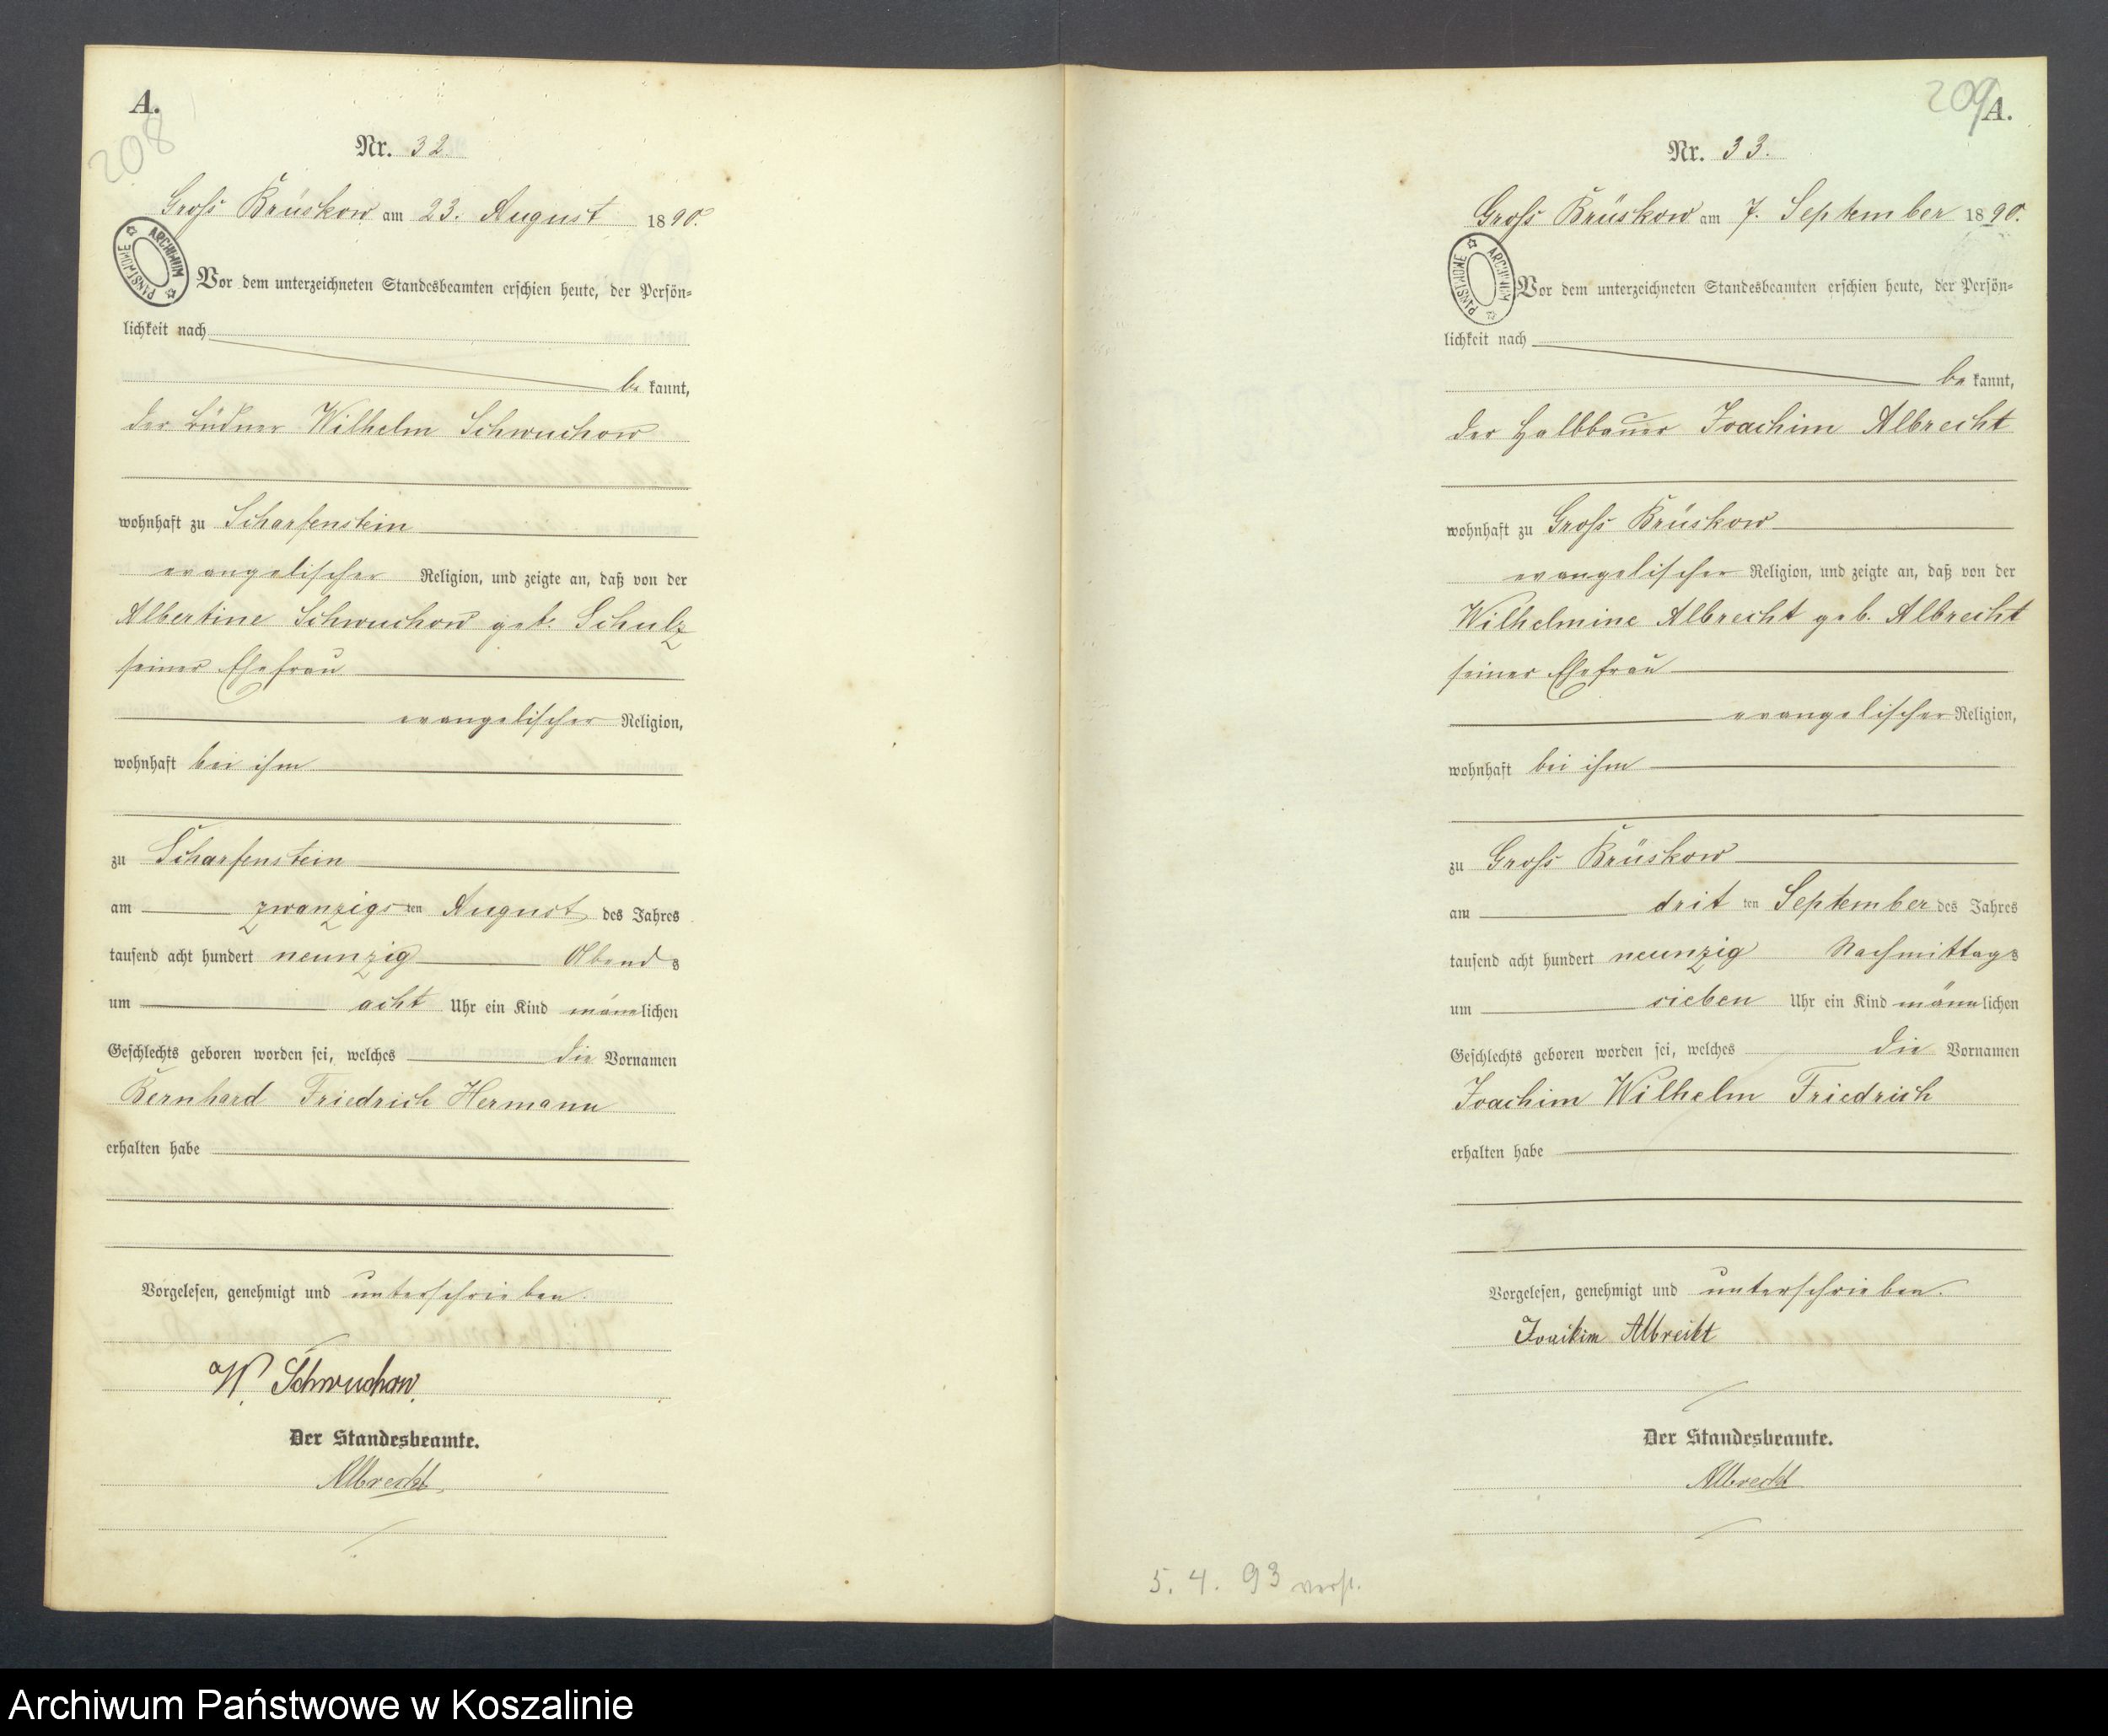 A.
208
Nr. 32.
Groß Brüskow am 23. August 1890.
ARCHIWUM PAŃSTWOWE
Vor dem unterzeichneten Standesbeamten erschien heute, der Persön-
lichkeit nach
be kannt,
der Büdner Wilhelm Schwuchow
wohnhaft zu Scharfenstein
evangelischer Religion, und zeigte an, daß von der
Albertine Schwuchow geb. Schulz
seiner Ehefrau
evangelischer Religion,
wohnhaft bei ihm
zu Scharfenstein
am zwanzigsten August des Jahres
tausend acht hundert neunzig Abends
um acht Uhr ein Kind männlichen
Geschlechts geboren worden sei, welches die Vornamen
Bernhard Friedrich Hermann
erhalten habe
Vorgelesen, genehmigt und unterschrieben.
W. Schwuchow.
Der Standesbeamte.
Albrecht.
209
A.
Nr. 33.
Groß Brüskow am 7. September 1890.
ARCHIWUM PAŃSTWOWE
Vor dem unterzeichneten Standesbeamten erschien heute, der Persön-
lichkeit nach
be kannt,
der Halbbauer Joachim Albrecht
wohnhaft zu Groß Brüskow
evangelischer Religion, und zeigte an, daß von der
Wilhelmine Albrecht geb. Albrecht
seiner Ehefrau
evangelischer Religion,
wohnhaft bei ihm
zu Groß Brüskow
am dritten September des Jahres
tausend acht hundert neunzig Nachmittags
um sieben Uhr ein Kind männlichen
Geschlechts geboren worden sei, welches die Vornamen
Joachim Wilhelm Friedrich
erhalten habe
Vorgelesen, genehmigt und unterschrieben.
Joachim Albrecht
Der Standesbeamte.
Albrecht
5. 4. 93 verst.
Archiwum Państwowe w Koszalinie